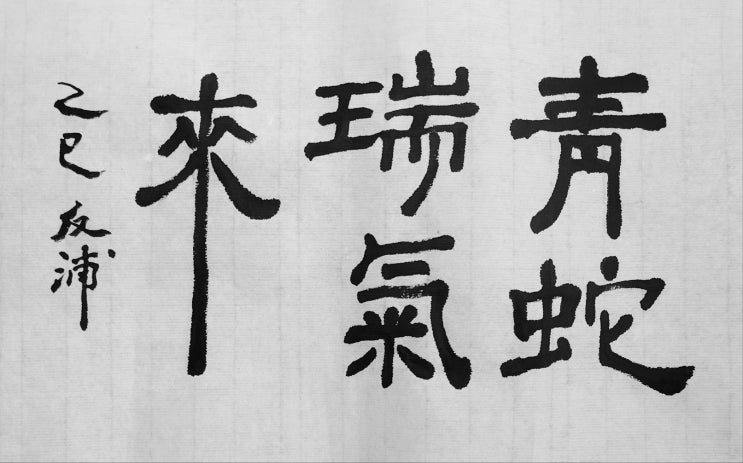 青蛇
瑞氣
來
乙巳 友浦